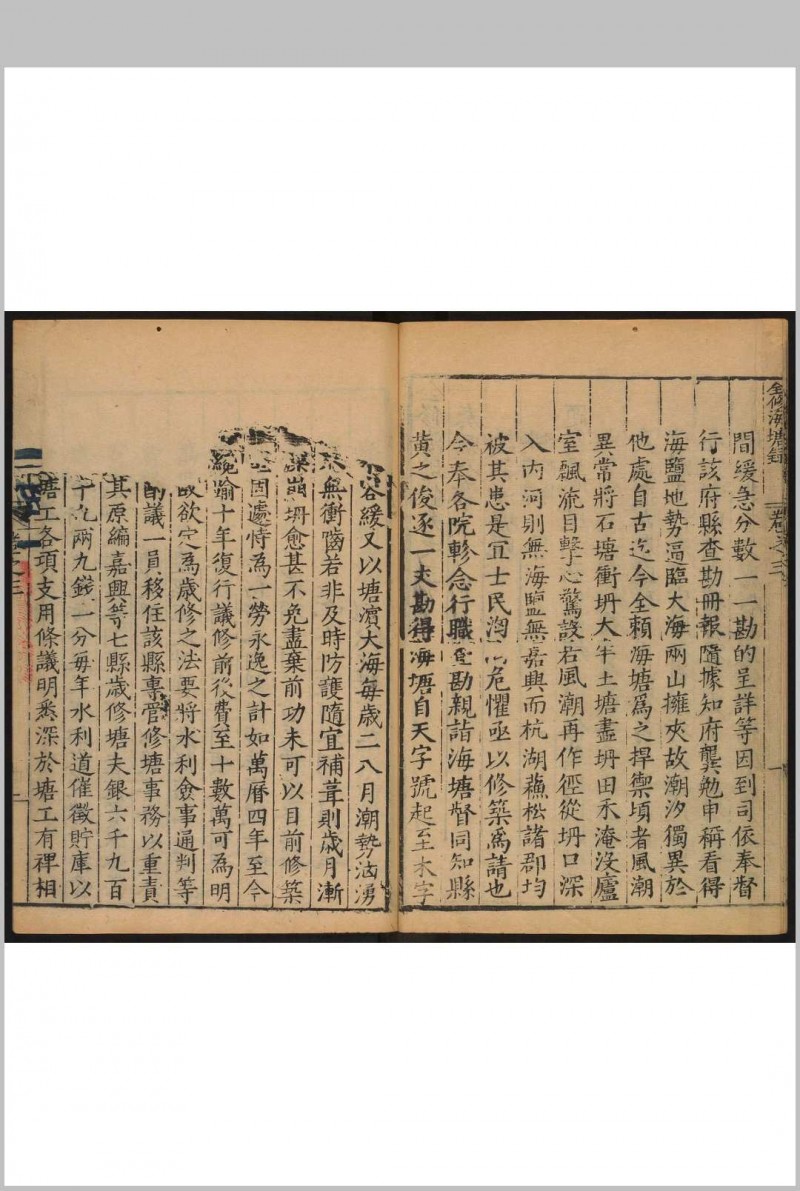 全修海塘錄
卷之三
一
間緩急分數一一勘的呈詳等因到司依奉督
行該府縣查勘冊報隨據知府龔勉申稱看得
海鹽地勢逼臨大海兩山擁夾故潮汐獨異於
他處自古迄今全賴海塘爲之捍禦頃者風潮
異常將石塘衝坍大半土塘盡坍田禾淹沒廬
室飄流目擊心驚設若風潮再作徑從坍口深
入內河則無海鹽無嘉興而杭湖蘇松諸郡均
被其患是宜士民洶洶危懼亟以修築爲請也
今奉各院軫念行職查勘親詣海塘督同知縣
黃之俊逐一丈勘得海塘自天字號起至木字
容緩又以塘濱大海每歲二八月潮勢洶湧
無衝嚙若非及時防護隨宜補葺則歲月漸
深崩坍愈甚不免盡棄前功未可以目前修築
因遽恃爲一勞永逸之計如萬曆四年至今
纔踰十年復行議修前後費至十數萬可爲明
欲定爲歲修之法要將水利僉事通判等
議一員移住該縣專管修塘事務以重責
其原編嘉興等七縣歲修塘夫銀六千九百
十九兩九錢一分每年水利道催徵貯庫以
塘工各項支用條議明悉深於塘工有裨相